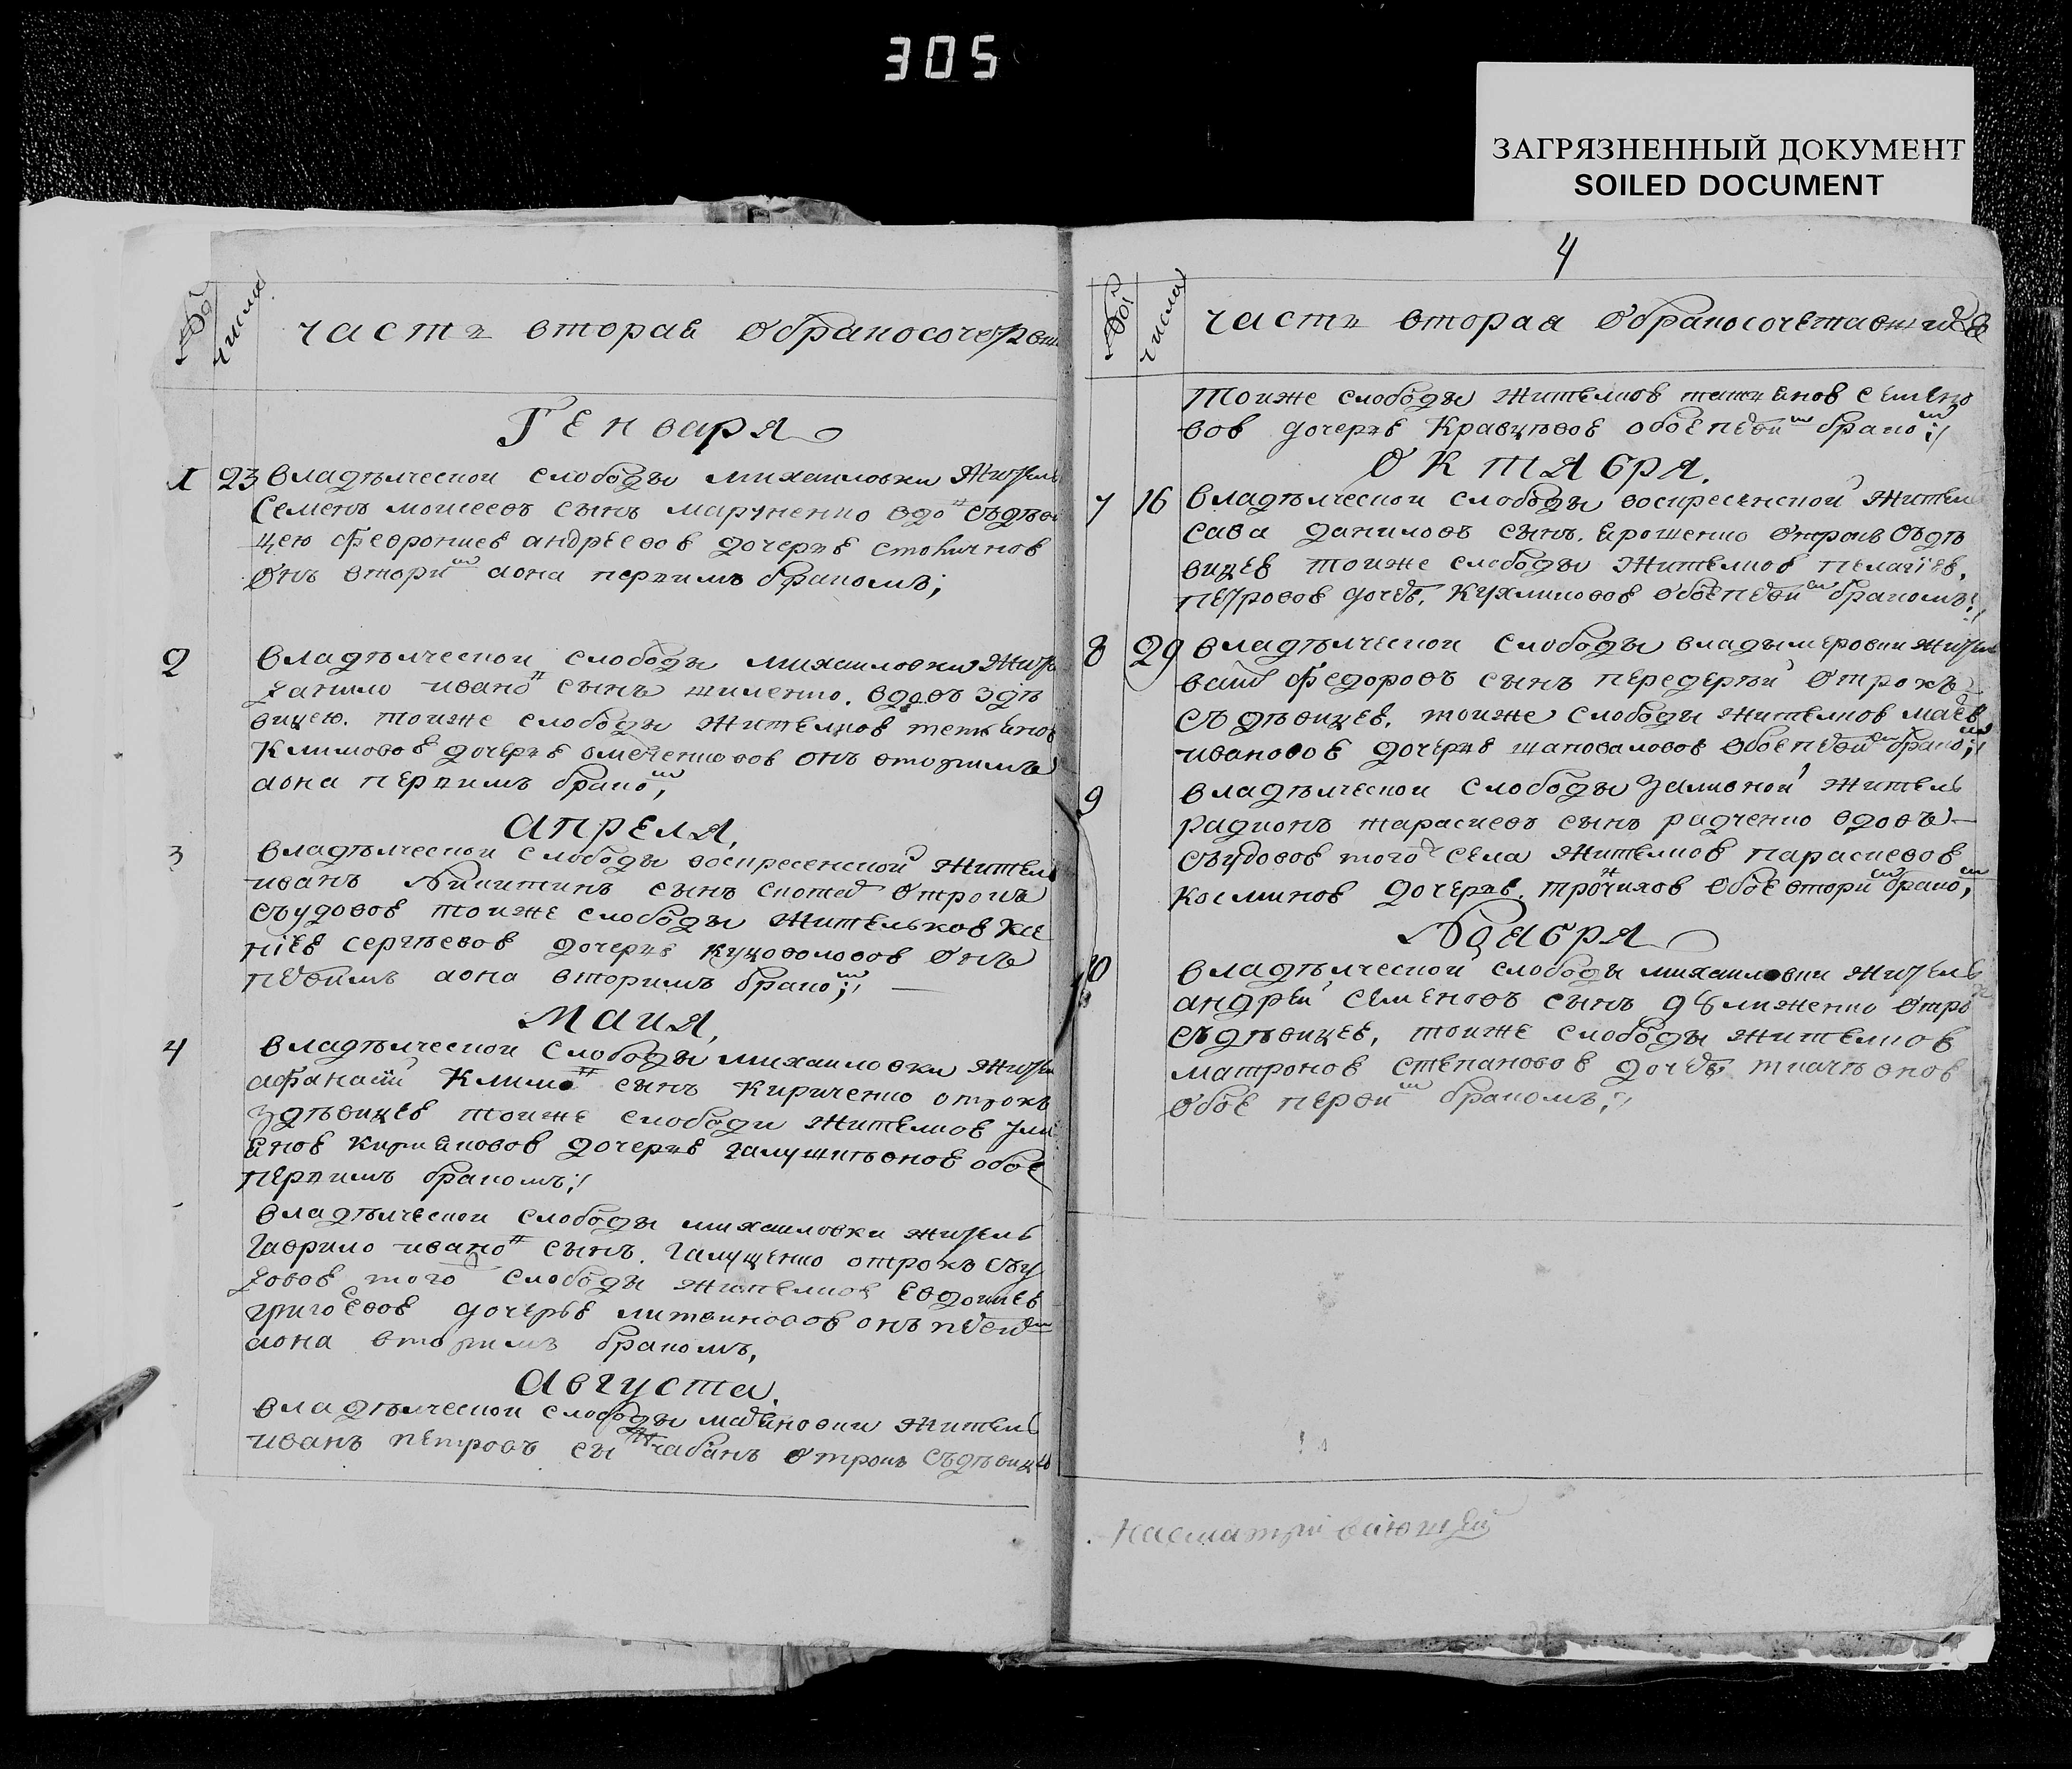 305
ЗАГРЯЗНЕННЫЙ ДОКУМЕНТ
SOILED DOCUMENT
числа
часть вторая О бракосоче
Генваря
1 23 владѣлческой слободы михаиловки житель
Семенъ моисеевъ сынъ марченко вдовъ съдѣви
цею февронией андреевов дочеръю
онъ вторим аона первимъ бракомъ;
2 владѣлческой слободы михаиловки жите
данило иванов сынъ шиленко. вдовъ здѣ
вицею. тоиже слободы жителков тетяною
Климовов дочерю онъ вторимъ
аона первимъ брако,
Апреля,
3 владѣлческой слободы воспресенской жител
иванъ Никитинъ сынъ отрокъ
съудовов тоиже слободы жительков Ксе
ніев сергѣевов дочерю куцоволовов онъ
первимъ аона вторимъ брако;
Маия,
4 владѣлческой слободы михаиловки жител
афанасий Климов сынъ Кириченко отрокъ
здѣвицев тоиже слободи жителков Ули
яною киріяновов дочерю галущиковнов обое
первимъ бракомъ;
владѣлческой слободы михаиловки житель
гаврило иванов сынъ. галущенко отрокъ съу
довов тогож слободы жителков Евдокиев
григорёвов дочерю литвиновов онъ первим
аона вторимъ бракомъ,
Августа.
владѣлческой слободы жител
иванъ петровъ сын чабанъ отрокъ съдѣвицею
4
числа
часть вторая О бракосочетавшихся
тоиже слободы жителков татіянов семено
вов дочерю Кравцѣвов обое первим брако;
Октября.
7 16 владѣлческой слободы воспресенской жител
сава даниловъ сынъ. ярошенко отрокъ съдѣ
вицев тоиже слободы жителков пелагіев.
петровов дочер. Кухликовов обое первим бракомъ;
8 29 владѣлческой слободы владымеровки жител
васил федоровъ сынъ передерѣй отрокъ
съдѣвицев. тоиже слободы жителков
ивановов дочерю шаповаловов обое первим брако;
9 владѣлческой слободы заливной житель
радионъ тарасиевъ сынъ радченко вдовъ
съудовов того села жителков парасиевов
космінов дочерю. обое вторим брако;
Ноября
10 владѣлческой слободы михаиловки житель
андрей семеновъ сынъ отро
съдѣвицев, тоиже слободы жителков
матронов степановов дочер ткачѣвнов
обое перви бракомъ;